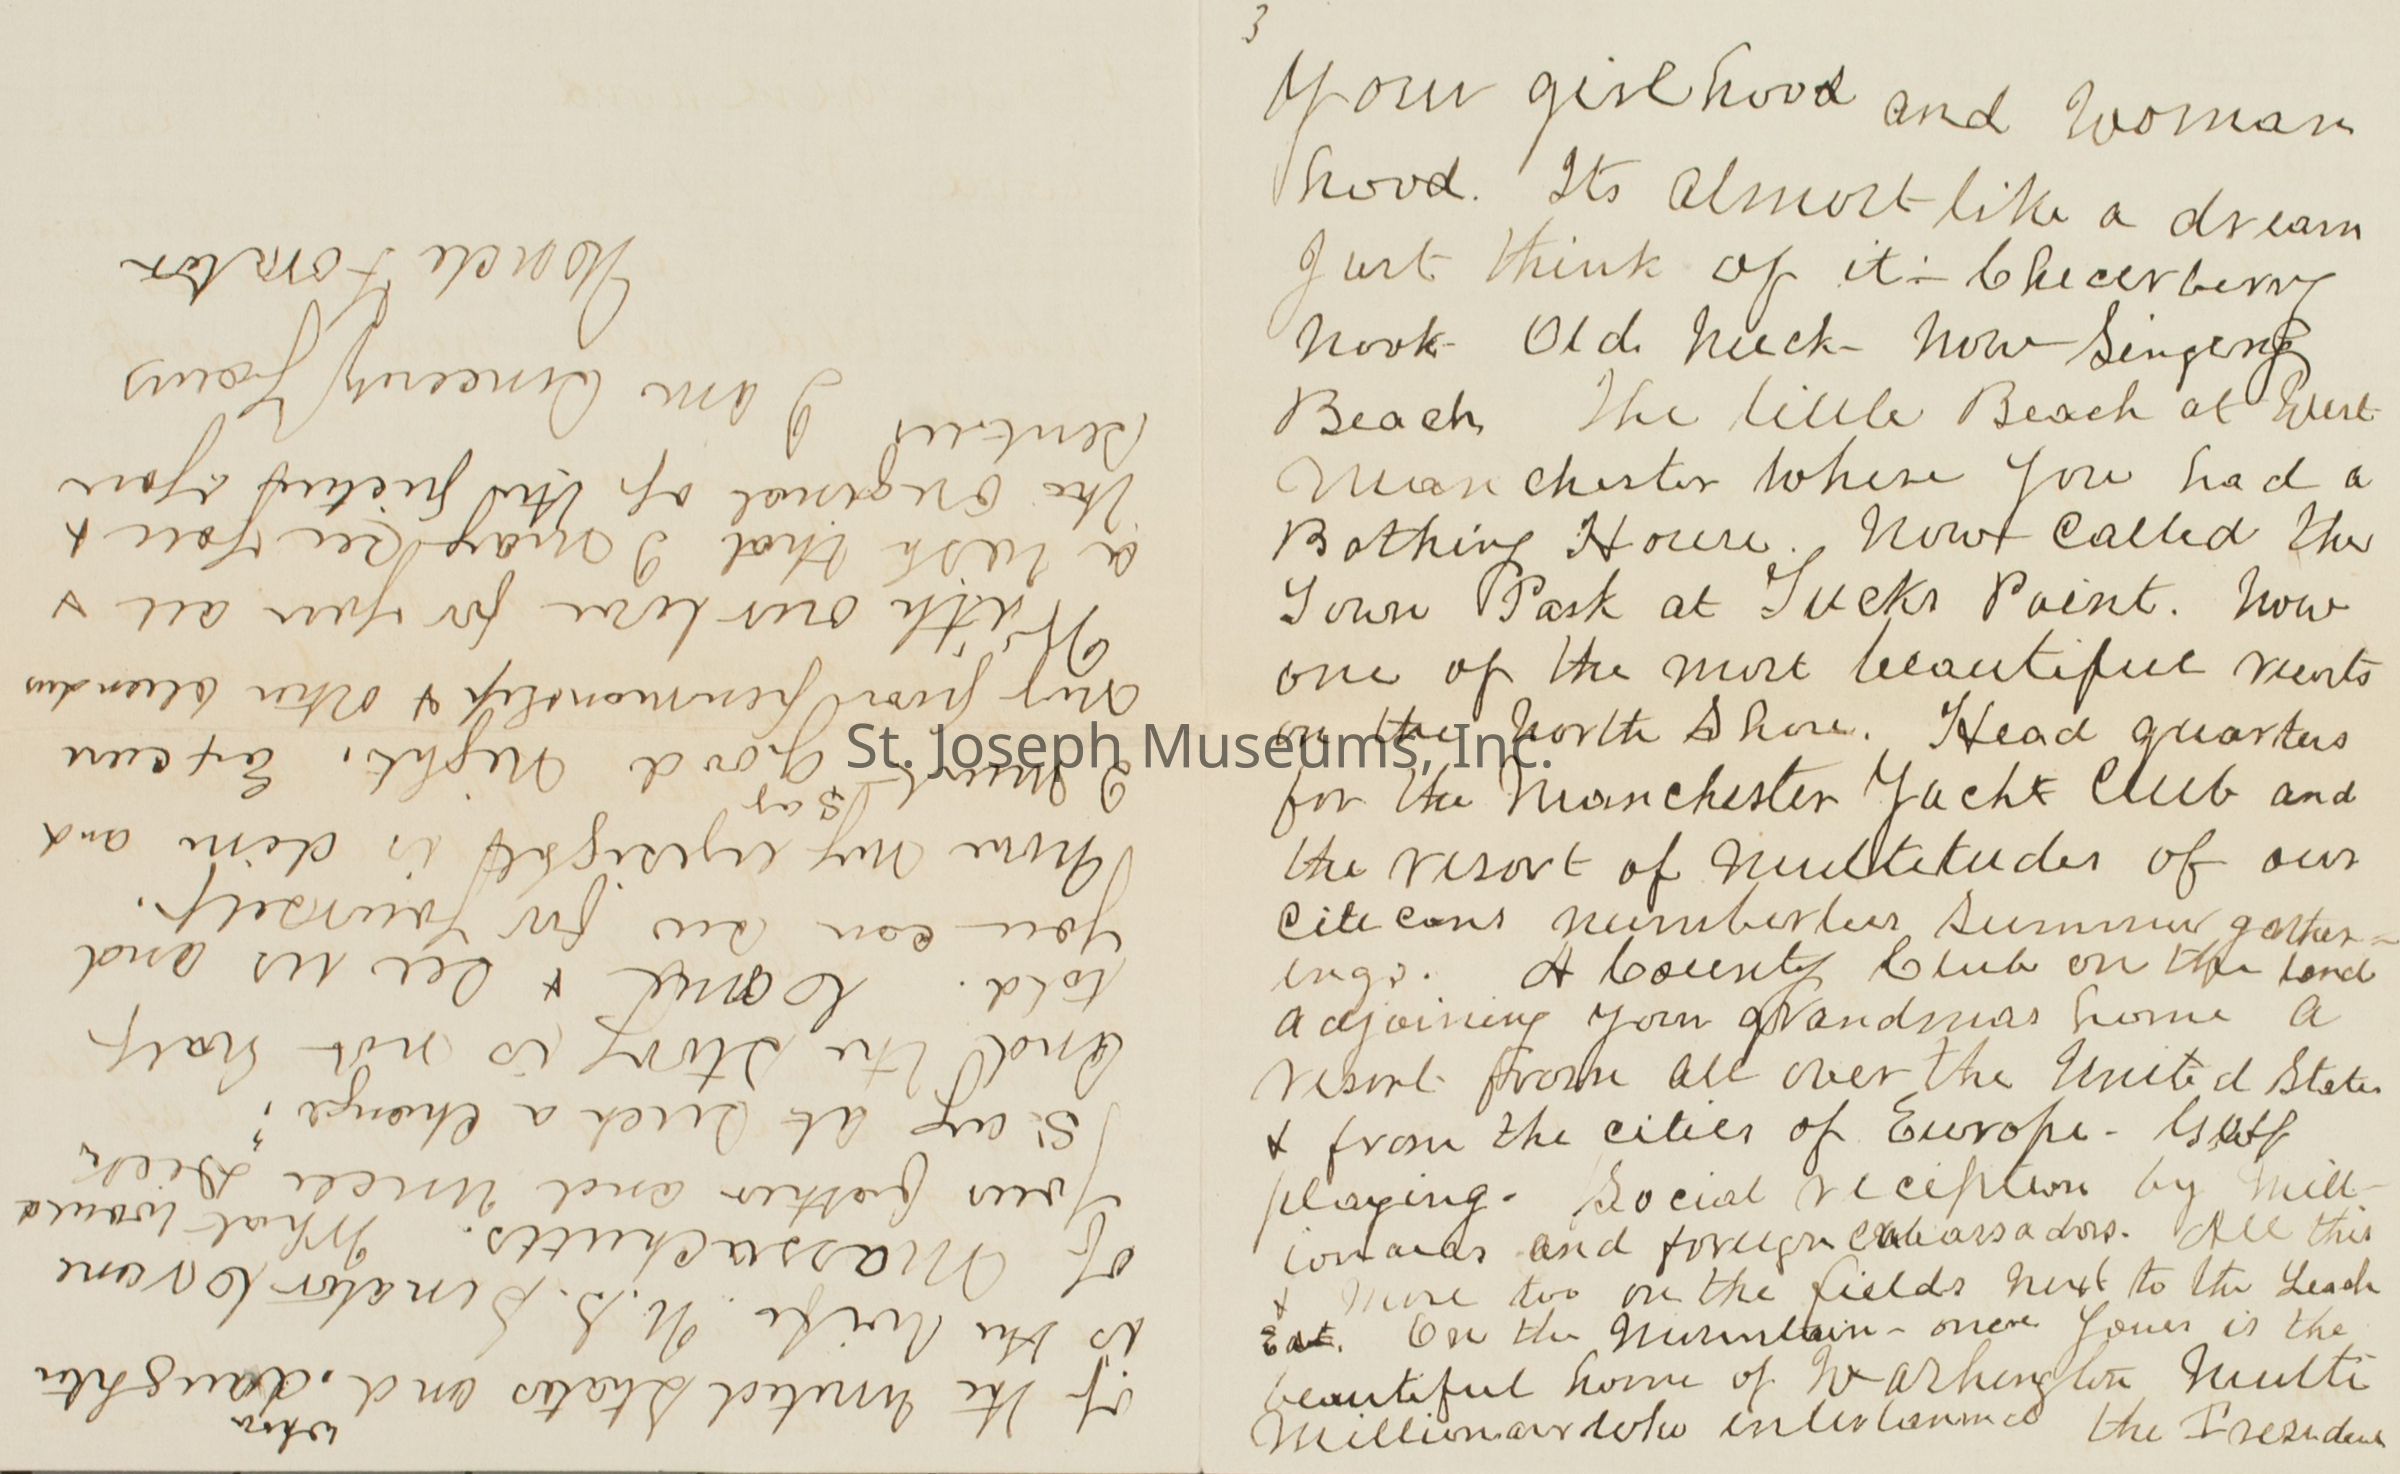 3
Your girlhood and Woman
hood. Its almost like a dream
Just think of it:- Checerberry
Nook- Old Neck- now Singing
Beach The little Beach at West
Manchester where you had a
Bathing House. Now called the
Town Park at Tucks Point. Now
one of the most beautiful resorts
on the North Shore. Head quarters
for the Manchester Yacht Club and
the resort of Multitudes of our
Citecens numberless Summer gather=
ings. A County Club on the land
adjoining your grandmas home a
resort from all over the United States
& from the cities of Europe- Golf
playing- Social reception by Mill-
ionaires and foreign embassadors. All this
& more too on the fields next to the Leach
On the Mountain- once yours is the
beautiful home of Washington Multi
Millionair who entertained the President
of the United States and daughter
whose
is the wife U.S. Senator
of Massachutts. What would
Your father and Uncle "Dick"
Say at such a change?
And the Story is not half
told. Come & See us and
you can see for yourself.
Now my eyesight is dim and
say
I must good night. Excuse
my poor penmanship & other blunders
With our love for you all &
a wish that I may See you &
the original of the picture you
sent us
I am Sincerely Yours
St. Joseph Museums, Inc.